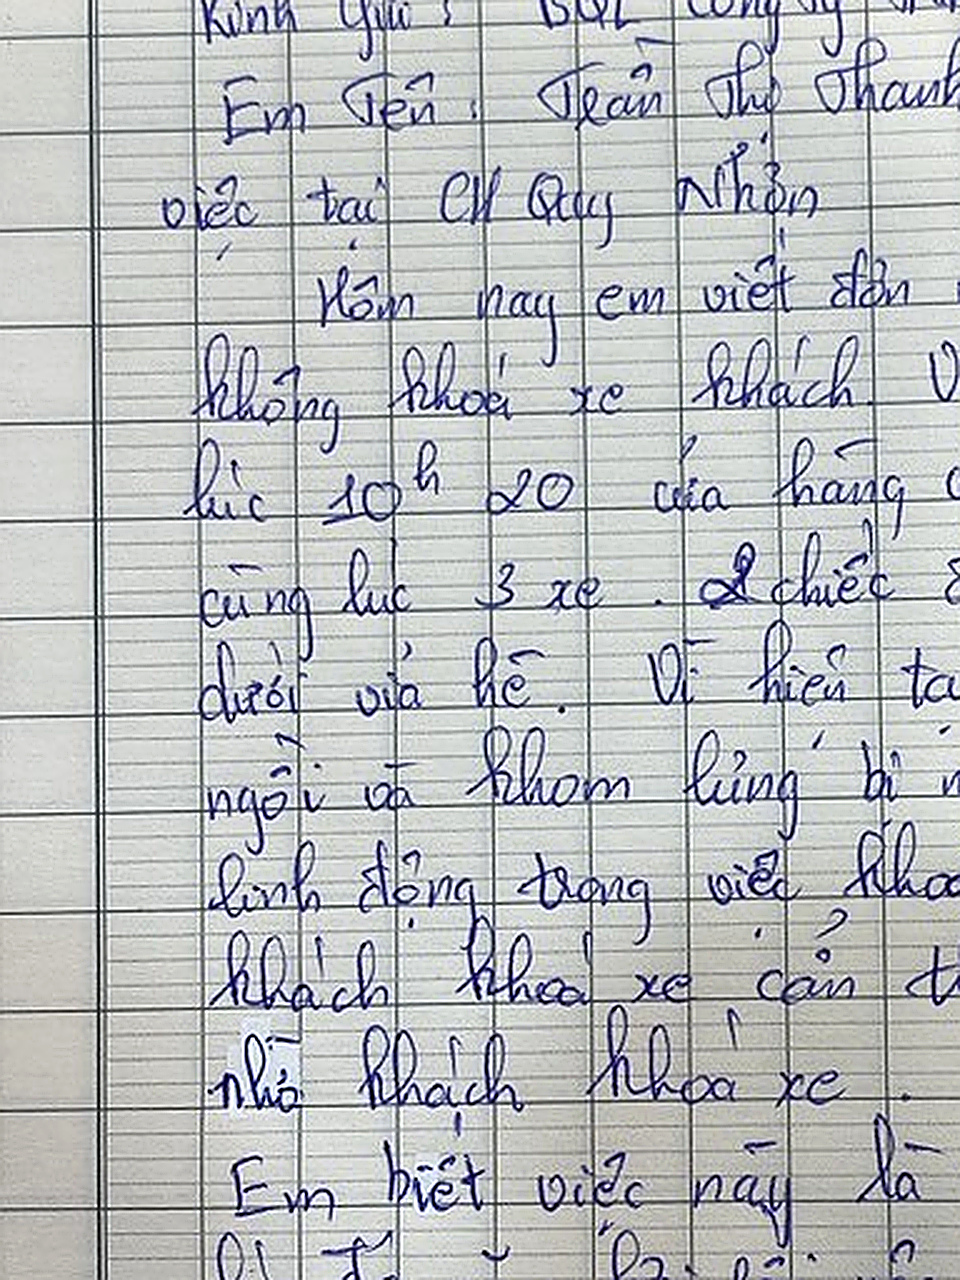 Kính gửi: BQL công ty
Em Tên: Trần Thị Thanh
việc tại CH Quy Nhơn
Hôm nay em viết đơn
không khoá xe khách. V
lúc 10h 20 cửa hàng
cùng lúc 3 xe. 2 chiếc
dưới vỉa hè. Vì hiện tạ
ngồi và khom lưng bị
linh động trong việc khoá
khách khoá xe cẩn th
nhờ khách khoá xe.
Em biết việc này là